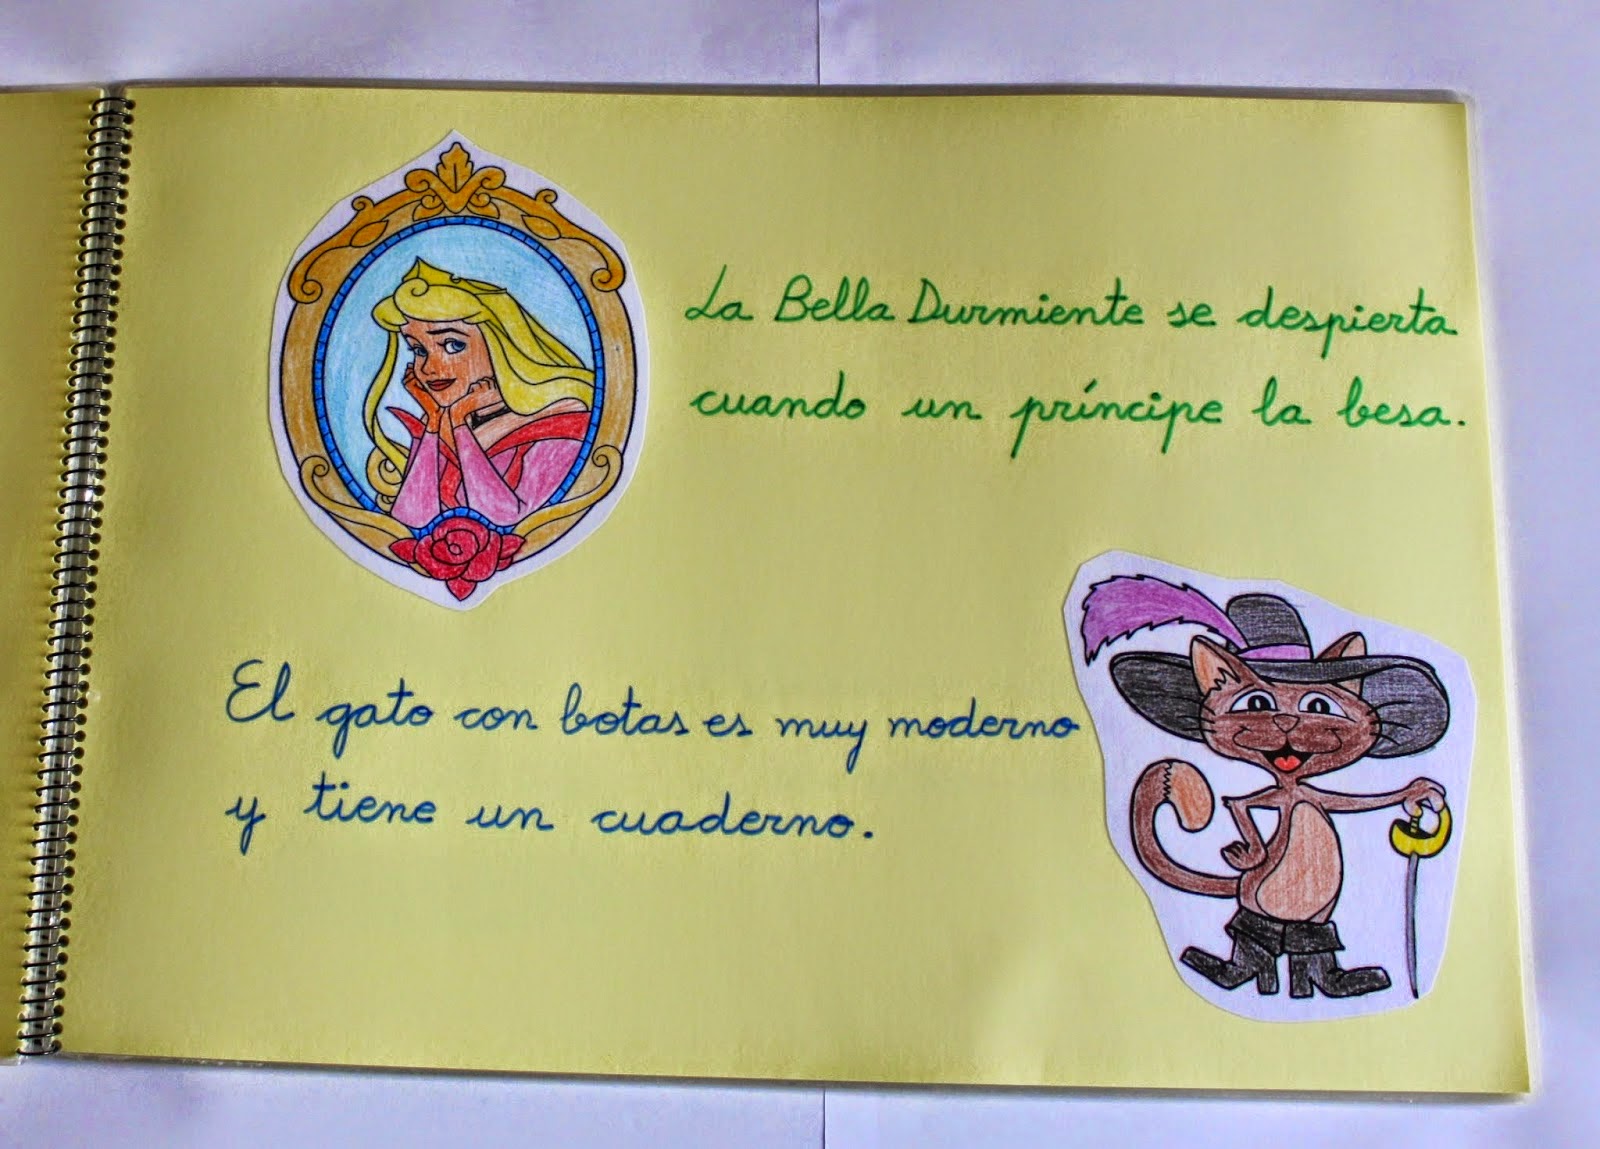 La Bella Durmiente se despierta
cuando un príncipe la besa.
El gato con botas es muy moderno
y tiene un cuaderno.